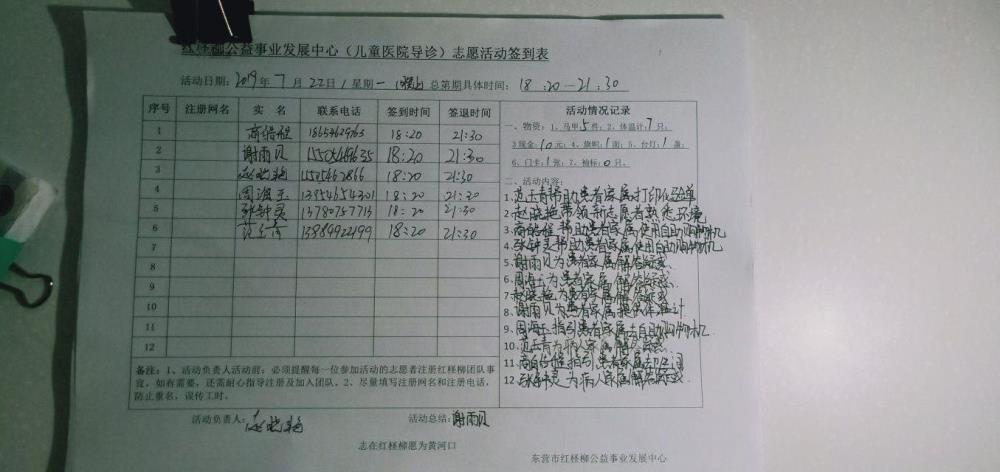 红柽柳公益事业发展中心（儿童医院导诊）志愿活动签到表
活动日期：2019年7月22日/星期一（晚上）总第期具体时间：18:20—21:30
序号 注册网名 实 名 联系电话 签到时间 签退时间 活动情况记录
1 18:20 21:30
一、物资：1、马甲5件；2、体温计：7只；
2 谢雨贝 18:20 21:30
3现金：10元；4、旗帜：1面；5、台灯：1盏；
3 赵晓艳 18:20 21:30
6、门卡：1张；7、袖标：0只。
二、活动内容：
4 周海玉 13954654301 18:20 21:30
1、范玉青帮助患者家属打印化验单
5 张钟灵 13780757713 18:20 21:30
2、赵晓艳带领新志愿者熟悉环境
6 范玉青 18:20 21:30
3、帮助患者家属使用自助购物机
7
4、张钟灵帮助患者家属使用自助购物机
8
5、谢雨贝为患者家属解答疑惑
9
6、周海玉为患者家属解答疑惑
10
7、赵晓艳为患者家属解答疑惑
11
8、谢雨贝为患者家属提供体温计
12
9、周海玉指引患者家属去自助购物机
10、范玉青为病人家属解答疑惑
11、指引患者家属去卫生间
12、张钟灵为病人家属解答疑惑
备注：1、活动负责人活动前：必须提醒每一位参加活动的志愿者注册红柽柳团队事
宜。如有需要，还需耐心指导注册及加入团队。2、尽量填写注册网名和注册电话，
防止重名，误传工时。
活动负责人：赵晓艳 活动总结：谢雨贝
志在红柽柳愿为黄河口
东营市红柽柳公益事业发展中心